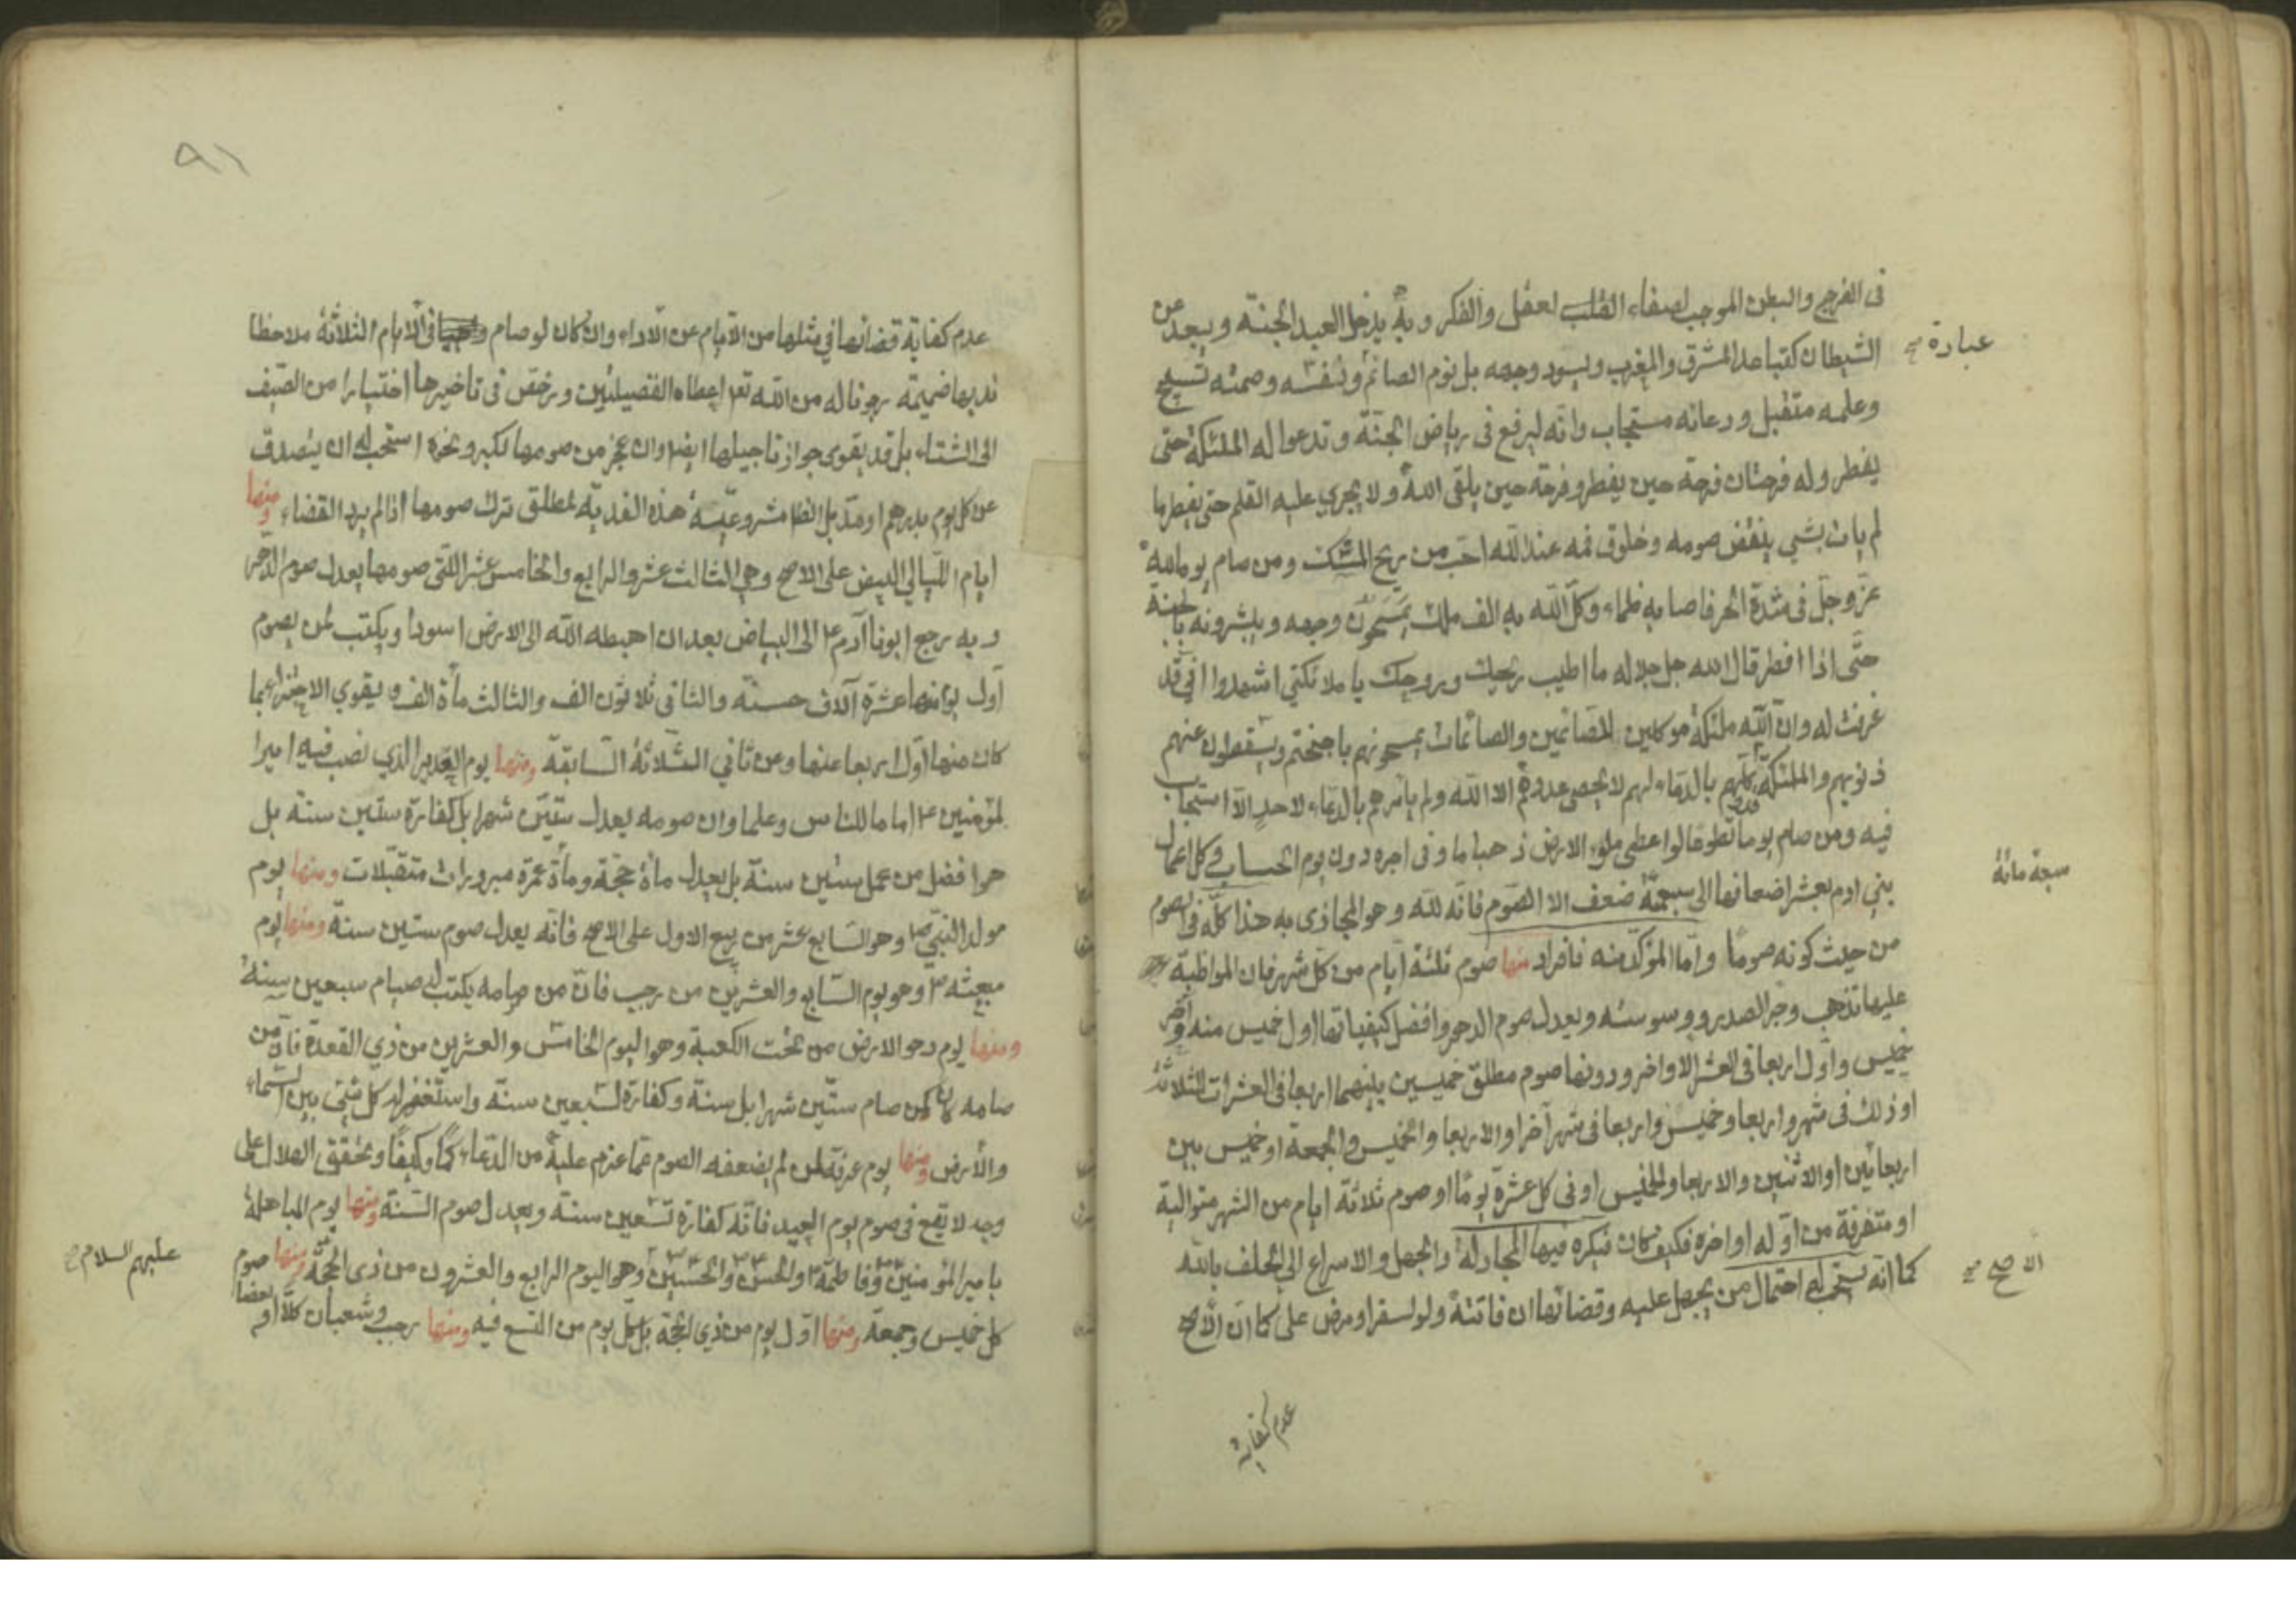 فى الفرج والبطن الموجب لصفاء القلب لعقل والفكر وبه يدخل العبد الجنة ويبعد عن
الشيطان كتباعد المشرق والمغرب ويسود وجهه بل نوم الصائم ونفسه وصمته تسبيح
عبادة صح
وعلمه متقبل ودعائه مستجاب وانه ليرفع فى رياض الجنة وتدعوا له الملئكة حتى
يفطر وله فرحتان فرحة حين يفطر وفرحة حين يلقى الله ولا يجري عليه القلم حتى يفطر ما
لم يات بشي ينقض صومه وخلوق فمه عند الله احب من ريح المسك ومن صام يوما لله
عز وجل فى شدة الحر فاصابه ظماء وكل الله به الف ملك يمسحون وجهه ويبشرونه بالجنة
حتى اذا افطر قال الله جل جلاله ما اطيب ريحك وروحك يا ملائكتي اشهدوا اني قد
غفرت له وان لله ملئكة موكلين للصائمين والصائمات يمسحونهم باجنحتهم ويسقطون عنهم
ذنوبهم والملئكة كلهم بالدعاء لهم لا يحصى عددهم الا الله ولم يأمرهم بالدعاء لاحد الا استجاب
فيه ومن صام يوما تطوعا لو اعطى ملؤ الارض ذهبا ما وفى اجره دون يوم الحساب وكل اعمال
بني ادم بعشر اضعافها الى سبعمة ضعف الا الصوم فانه لله وهو المجازى به هذا كله فى الصوم
سبعة مائة
من حيث كونه صوما واما المؤكد منه فافراد منها صوم ثلثة ايام من كل شهر فان المواظبة
عليها تذهب وحر الصدر ووسوسته ويعدل صوم الدهر وافضل كيفياتها اول خميس منه وآخر
خميس واول اربعا فى العشر الاواخر ودونها صوم مطلق خميسين بينهما اربعا فى العشرات الثلاثة
او ذلك فى شهر واربعا وخميس واربعا فى شهر آخر او الاربعا والخميس والجمعة او خميس بين
اربعائين او الاثنين والاربعا والخميس او فى كل عشرة يوما او صوم ثلاثة ايام من الشهر متوالية
او متفرقة من اوله او اخره فكيف كان فيكره فيها المجادلة والجهل والاسراع الى الحلف بالله
كما انه يستحب له احتمال من يجهل عليه وقضائها ان فاتته ولو لسفر او مرض على كما ان الاصح
الاصح صح
عدم كفاية
٩١
عدم كفاية قضائها في مثلها من الايام عن الاداء وان كان لو صام فى الايام الثلاثة ملاحظا
ندبها ضميمة رجونا له من الله تع اعطاه الفضيلتين ورخص فى تاخيرها اختيارا من الصيف
الى الشتاء بل قد يقوى جواز تاجيلها ايضا وان عجز من صومها لكبر ونحوه استحب له ان يتصدق
عن كل يوم بدرهم او مد بل الظ مشروعية هذه الفدية لمطلق ترك صومها اذا لم يرد القضاء ومنها
ايام الليالي البيض على الاصح وهي الثالث عشر والرابع والخامس عشر اللتى صومها يعدل صوم الدهر
وبه رجع ابونا آدم ع الى البياض بعد ان اهبطه الله الى الارض اسودا ويكتب لمن يصوم
اول يوم منها عشرة آلاف حسنة والثانى ثلاثون الف والثالث مأة الف ويقوي الاجتزاء بما
كان منها اول اربعا عنها وعن ثاني الثلاثة السابقة ومنها يوم الغدير الذي نصب فيه اميرا
لمؤمنين ع اماما للناس وعلما وان صومه يعدل ستين شهرا بل كفارة ستين سنة بل
هو افضل من عمل ستين سنة بل يعدل مأة حجة ومأة عمرة مبرورات متقبلات ومنها يوم
مولد النبي ص وهو السابع عشر من ربيع الاول على الاصح فانه يعدل صوم ستين سنة ومنها يوم
مبعثه ص وهو يوم السابع والعشرين من رجب فان من صامه يكتب له صيام سبعين سنة
ومنها يوم دحو الارض من تحت الكعبة وهو اليوم الخامس والعشرين من ذي القعدة فان من
صامه كان كمن صام ستين شهرا بل سنة وكفارة لسبعين سنة واستغفر له كل شئ بين السماء
والأرض ومنها يوم عرفة لمن لم يضعفه الصوم عما عزم عليه من الدعاء كما وكيفا وتحقق الهلال على
وجه لا يقع فى صوم يوم العيد فانه كفارة تسعين سنة ويعدل صوم السنة ومنها يوم المباهلة
بامير المؤمنين وفاطمة والحسن والحسين وهو اليوم الرابع والعشرون من ذى الحجة ومنها صوم
عليهم السلام صح
كل خميس وجمعة ومنها اول يوم من ذي الحجة بل كل يوم من التسع فيه ومنها رجب وشعبان كلا او بعضا